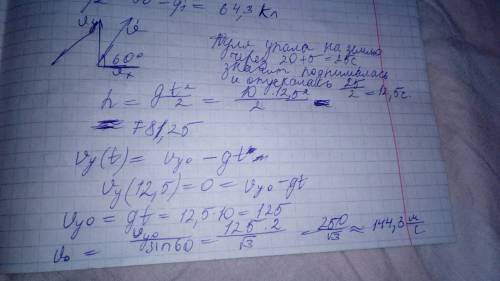 = 64,3 Кл
vy
v₀
60°
vx
Пуля упала на землю
через 20+5 = 25с
значит поднималась
и опускалась 25/2 = 12,5с.
h = gt²/2 = 10·12,5²/2 =
= 781,25
vy(t) = vy₀ - gt
vy(12,5) = 0 = vy₀ - gt
vy₀ = gt = 12,5·10 = 125
v₀ = vy₀/sin60 = 125·2/√3 = 250/√3 ≈ 144,3 м/с